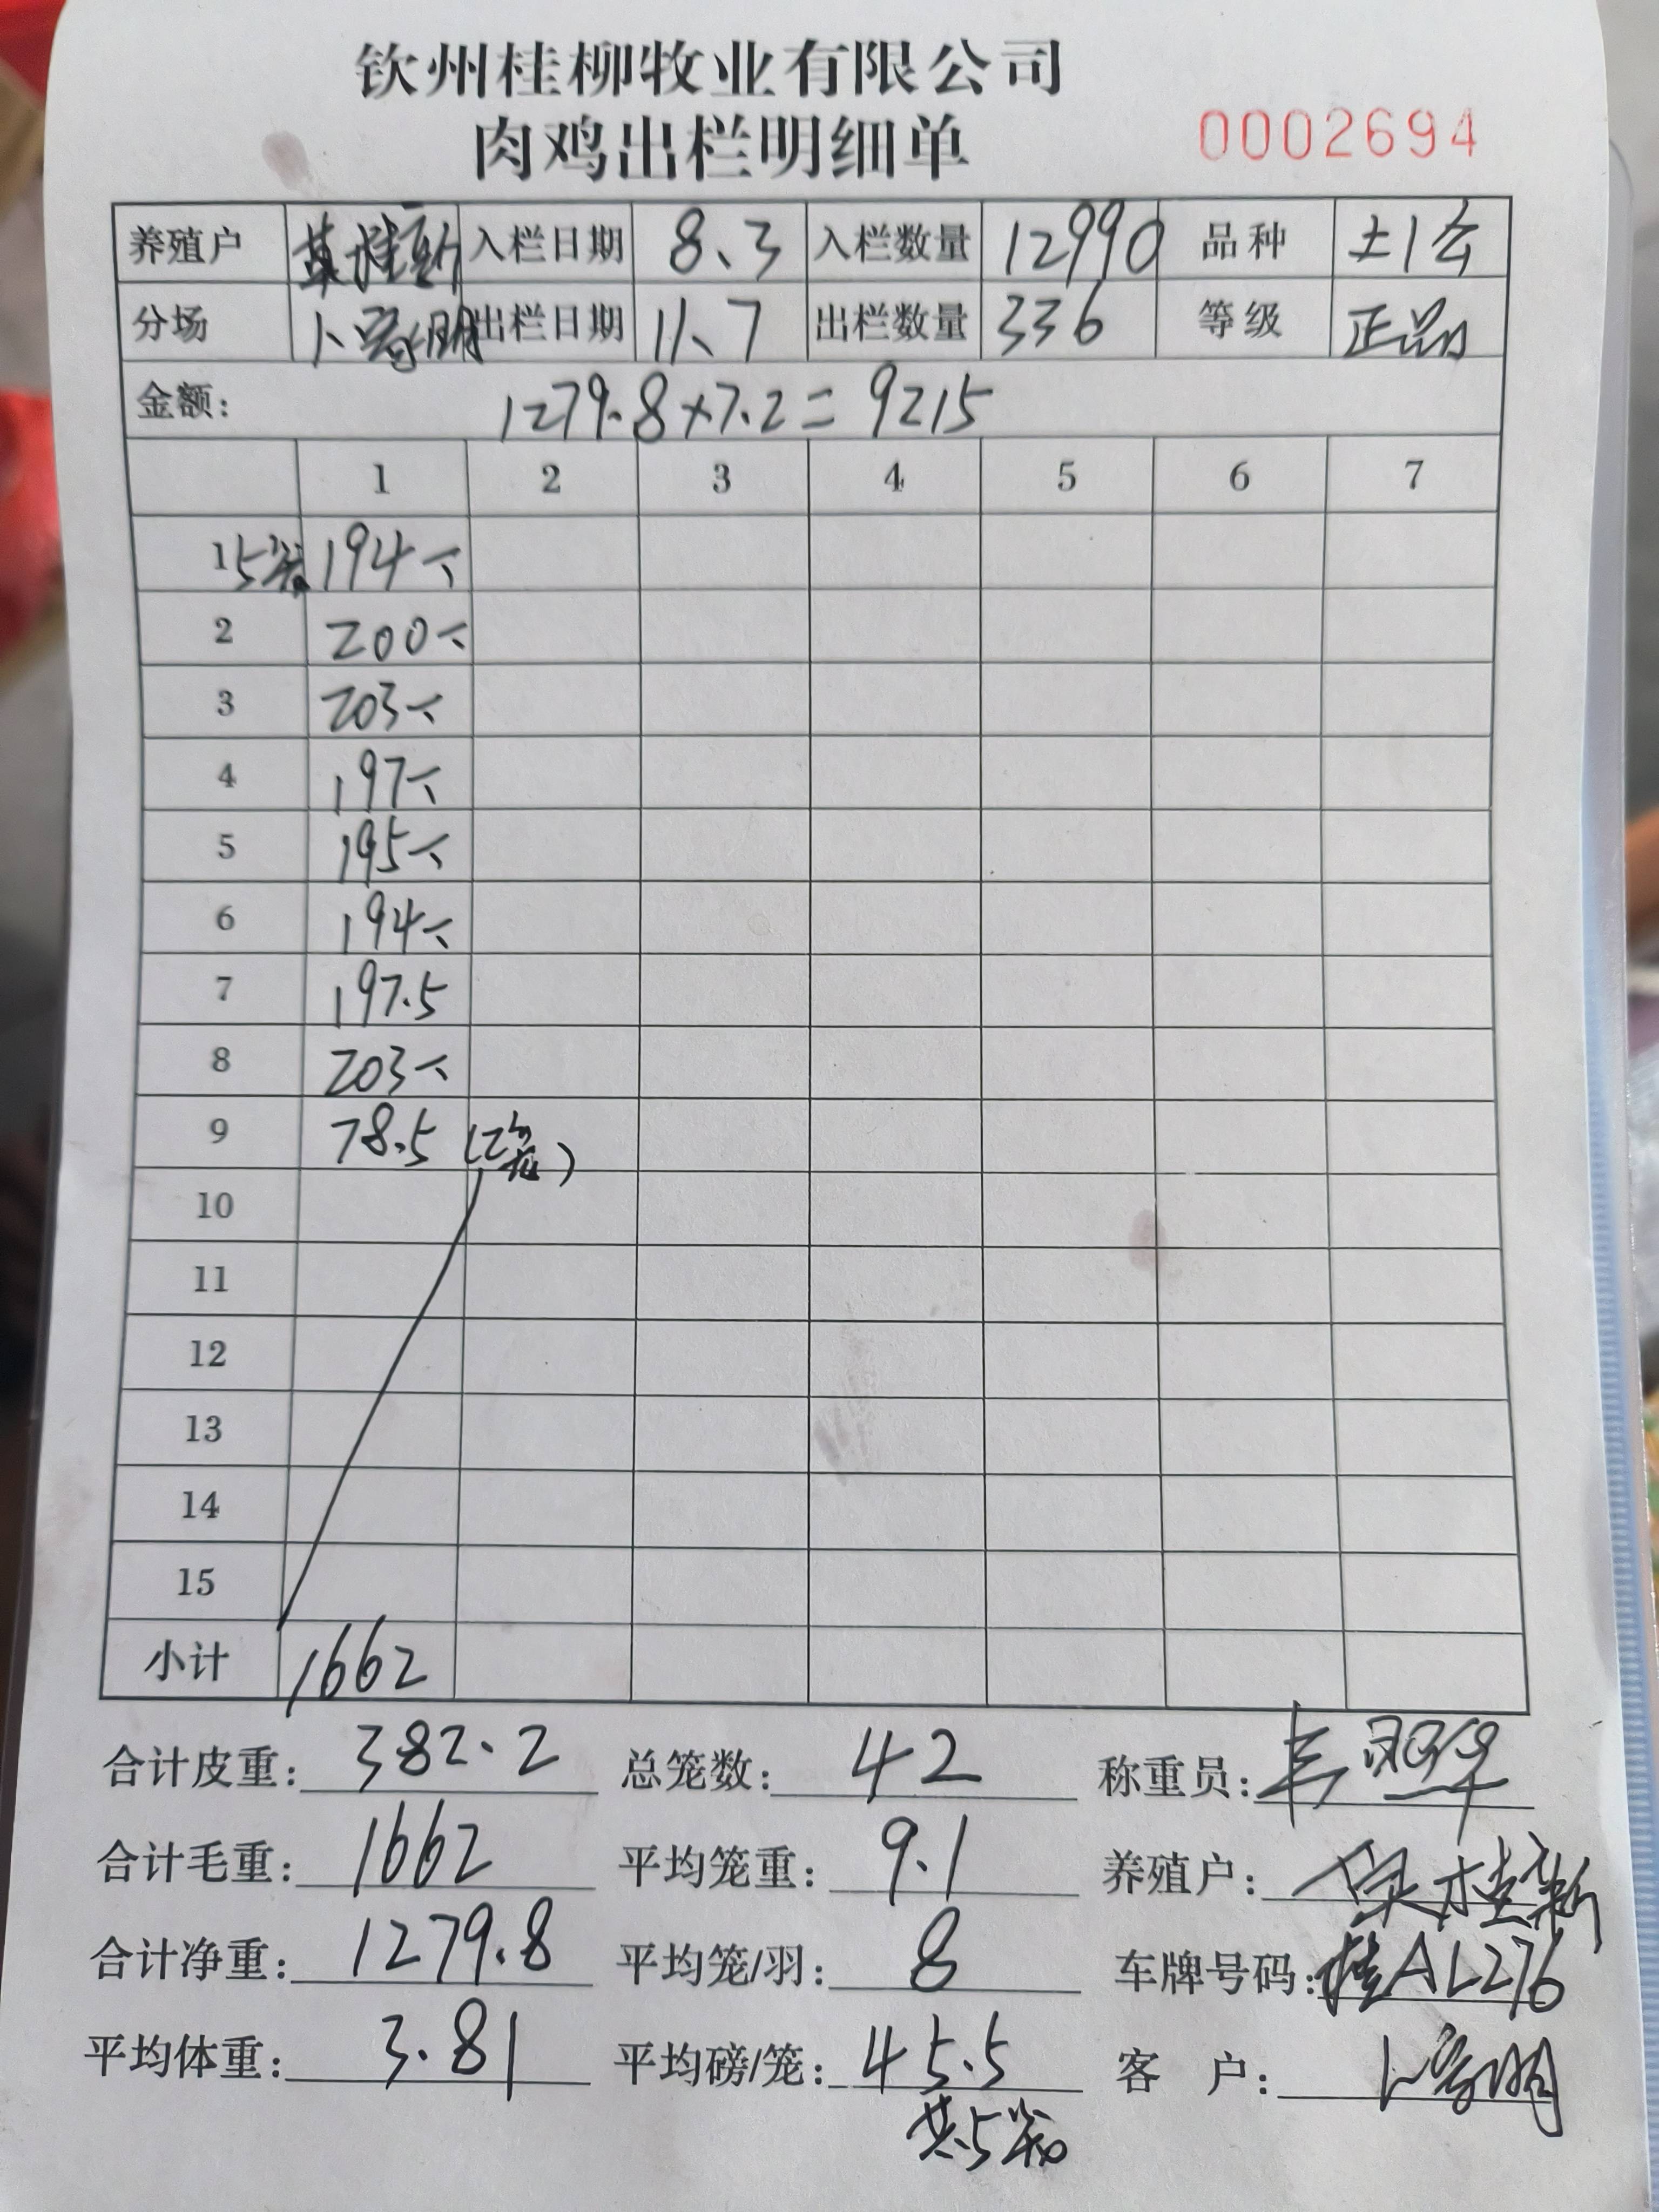 钦州桂柳牧业有限公司
肉鸡出栏明细单 0002694
养殖户 桂新 入栏日期 8.3 入栏数量 12990 品种 土1公
分场 卜 明 出栏日期 11.7 出栏数量 336 等级 正品
金额: 1279.8×7.2=9215
1 2 3 4 5 6 7
1 5笼 194个
2 200个
3 203个
4 197个
5 195个
6 194个
7 197.5
8 203个
9 78.5 (2笼)
10
11
12
13
14
15
小计 1662
合计皮重: 382.2 总笼数: 42 称重员:
合计毛重: 1662 平均笼重: 9.1 养殖户: 桂新
合计净重: 1279.8 平均笼/羽: 8 车牌号码: 桂AL276
平均体重: 3.81 平均磅/笼: 45.5 客户: 卜 明
共5